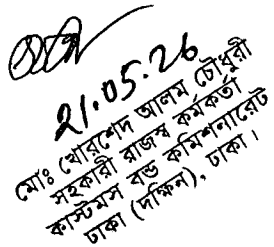 21.05.26
মোঃ খোরশেদ আলম চৌধুরী
সহকারী রাজস্ব কর্মকর্তা
কাস্টমস বন্ড কমিশনারেট
ঢাকা (দক্ষিন), ঢাকা।